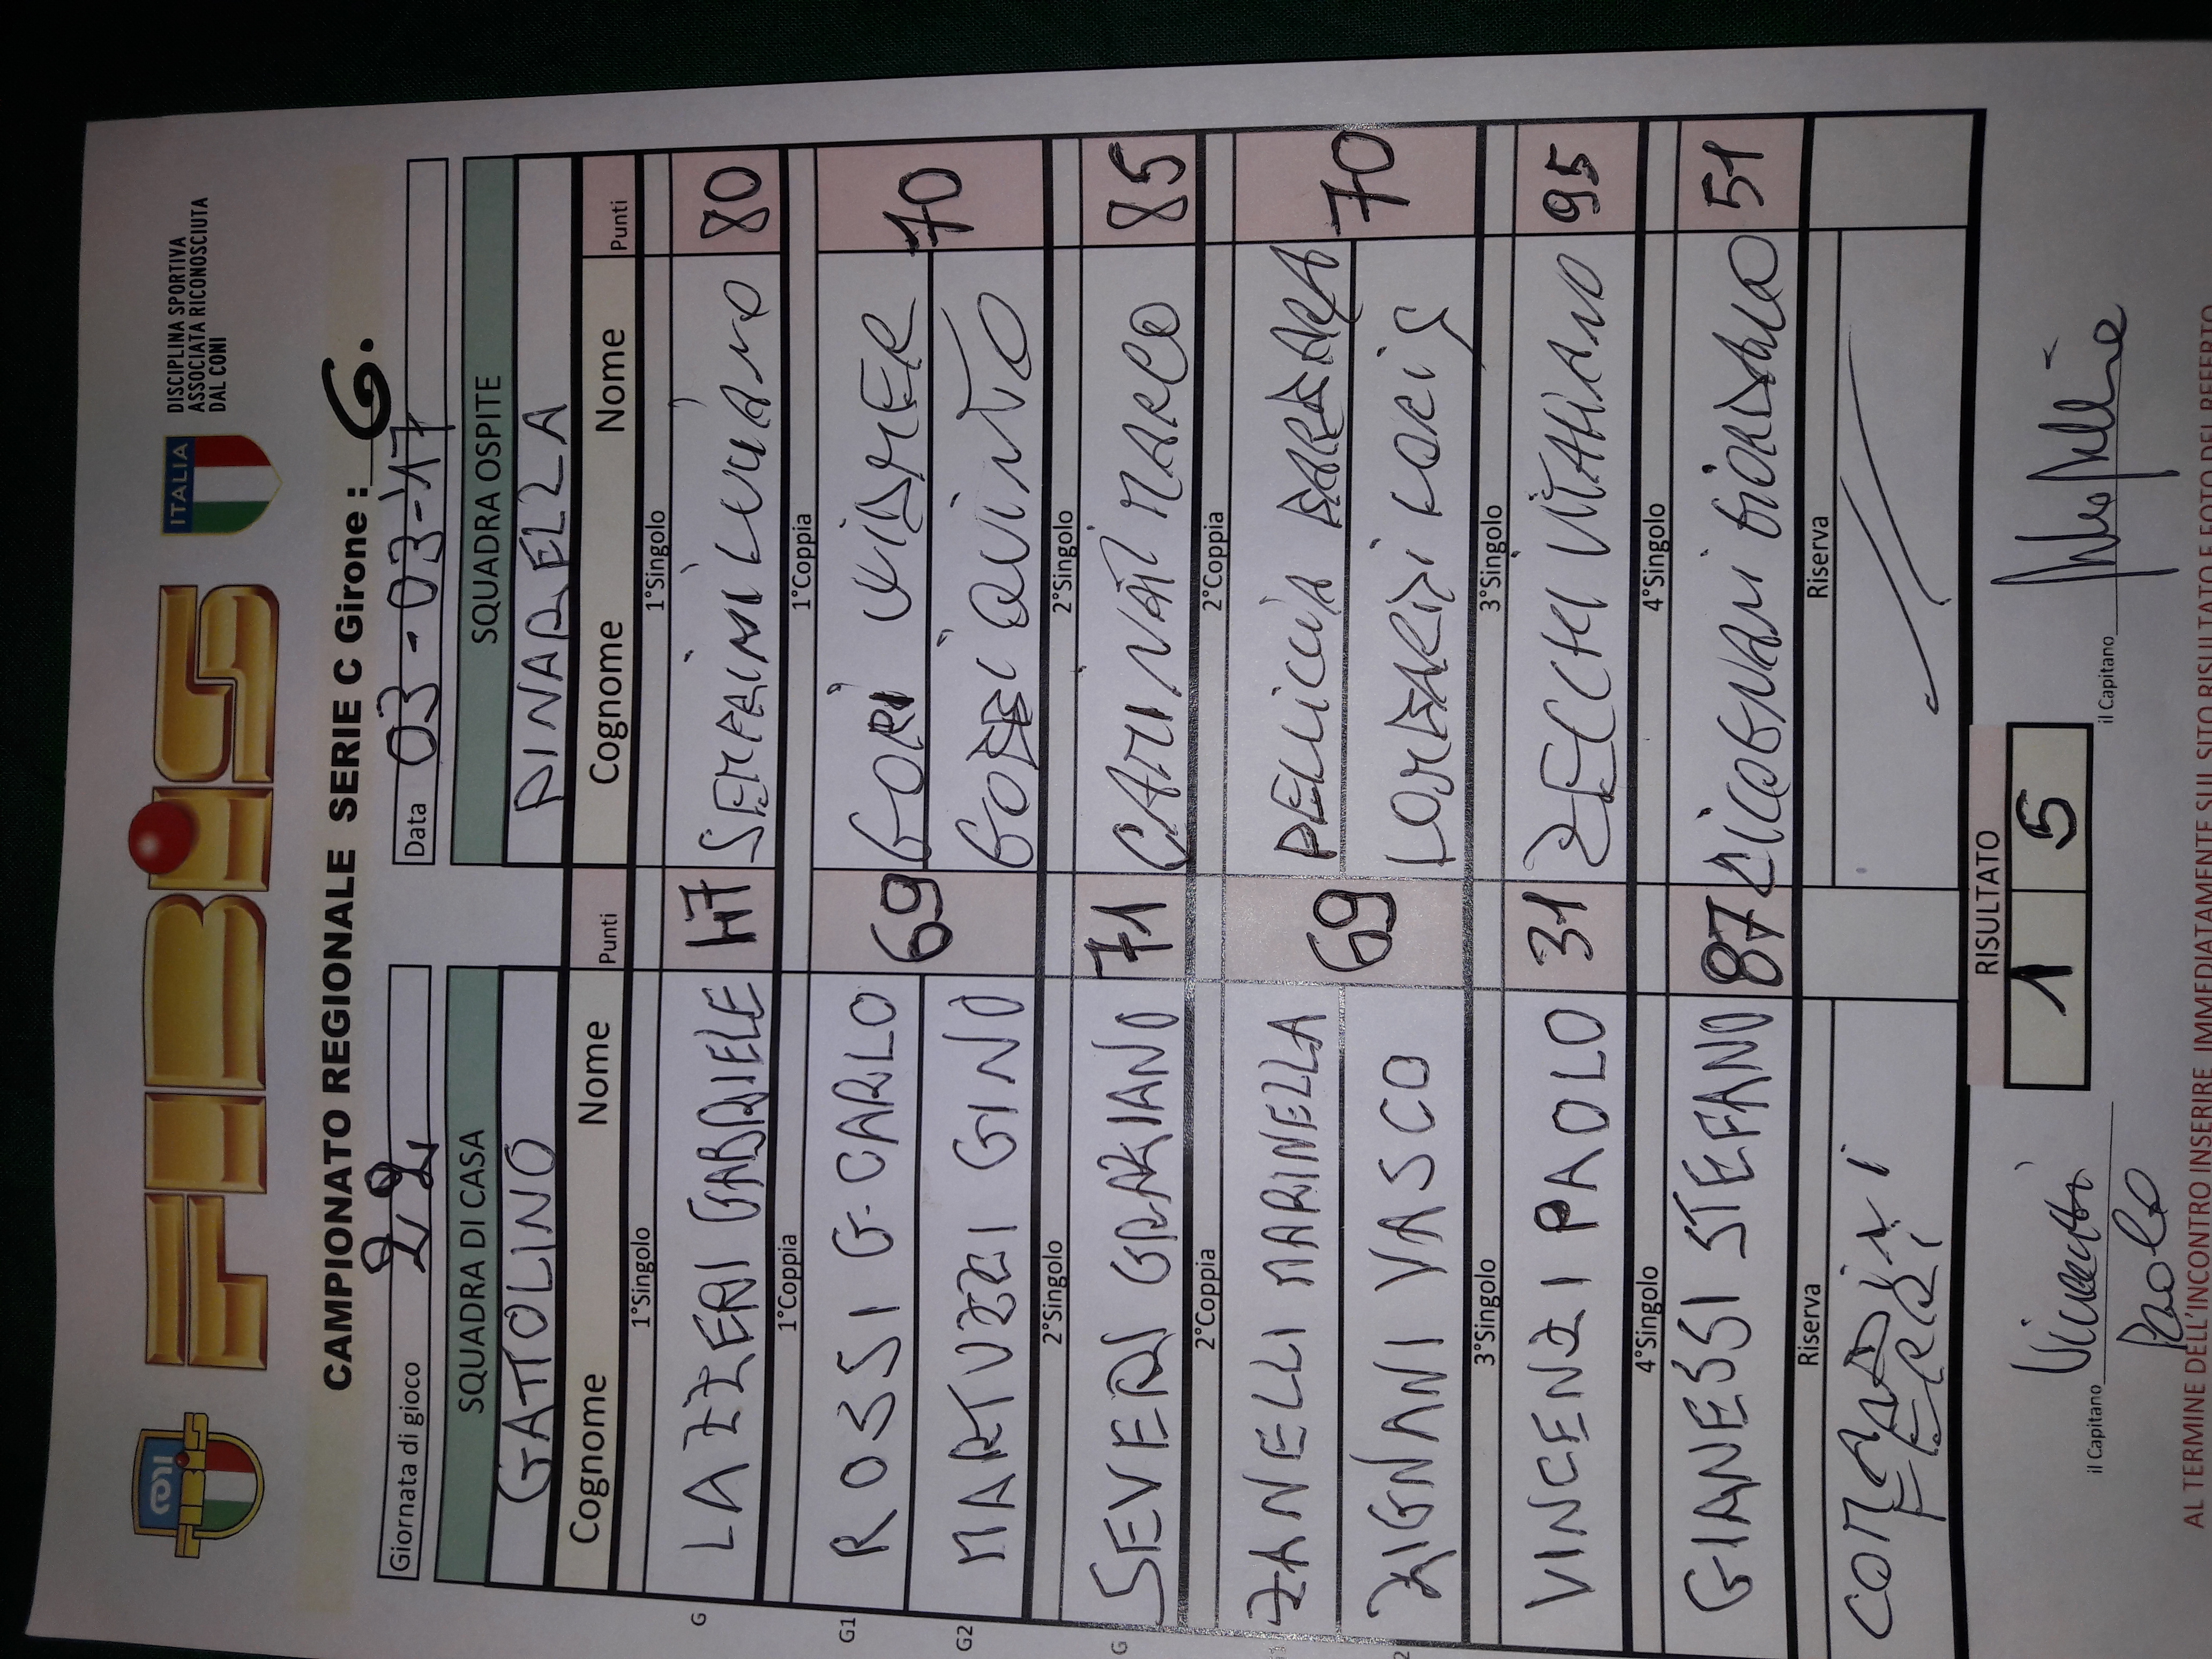 CONI
FIBIS
FIBIS
ITALIA
DISCIPLINA SPORTIVA
ASSOCIATA RICONOSCIUTA
DAL CONI
CAMPIONATO REGIONALE SERIE C Girone : G.
Giornata di gioco 22 Data 03-03-17
SQUADRA DI CASA SQUADRA OSPITE
GATTOLINO PINARELLA
Cognome Nome Punti Cognome Nome Punti
1°Singolo 1°Singolo
G LAZZERI GABRIELE 47 SERAFINI LUCIANO 80
1°Coppia 1°Coppia
G1 ROSSI G.CARLO 69 GORI VIDMER 70
G2 MARTUZZI GINO QUINTO
2°Singolo 2°Singolo
G SEVERI GRAZIANO 71 MARCO 85
2°Coppia 2°Coppia
ZANELLI MARINELLA 69 PELLICCIA BARBARA 70
2 ZIGNANI VASCO LOMBARDI LORIS
3°Singolo 3°Singolo
VINCENZI PAOLO 31 ZECCHI VITALIANO 95
4°Singolo 4°Singolo
GIANESSI STEFANO 87 CICOGNANI GIORDANO 51
Riserva Riserva
RISULTATO
1 5
il Capitano Vincenzi Paolo il Capitano
AL TERMINE DELL'INCONTRO INSERIRE IMMEDIATAMENTE SUL SITO RISULTATO E FOTO DEL REFERTO